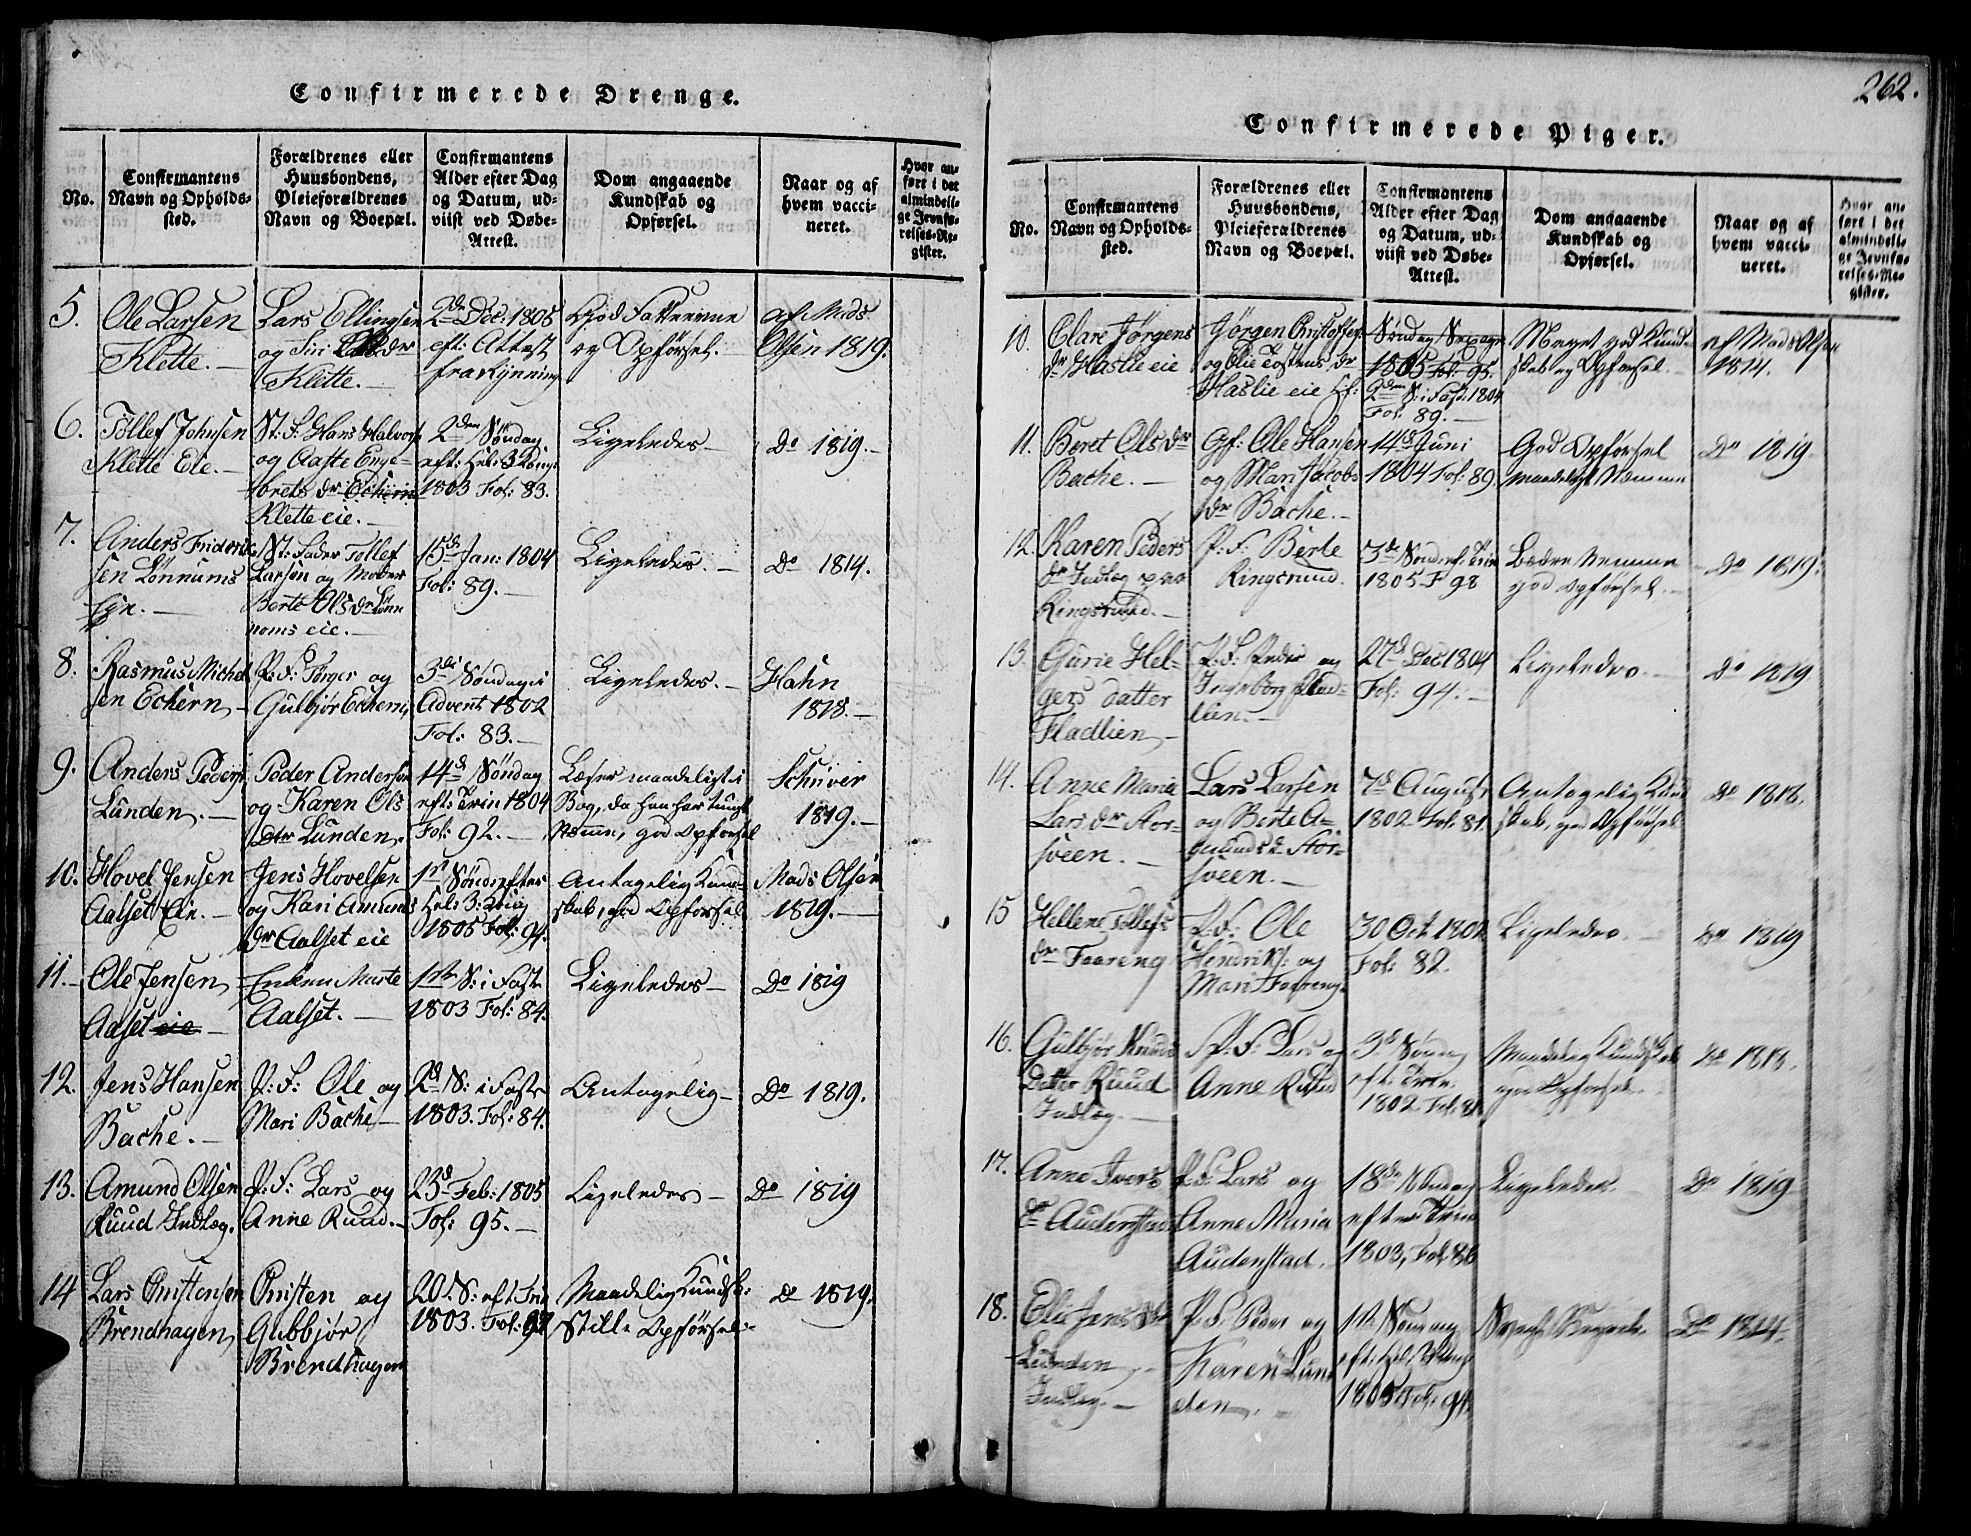 Confirmerede Drenge.
No.
Confirmantens
Navn og Opholds-
sted.
Forældrenes eller
Huusbondens,
Pleieforældrenes
Navn og Boepæl.
Confirmantens
Alder efter Dag
og Datum, ud-
viist ved Døbe-
Attest.
Dom angaaende
Kundskab og
Opførsel.
Naar og af
hvem vacci-
neret.
Hvor an-
ført i det
almindeli-
ge Jevnfø-
relses-Re-
gister.
5.
Ole Larsen
Klette.
Lars Ellingsen
og Siri dr
Klette.
2de Dec: 1805
eft: Attest
fra
God Fatteevne
og Opførsel.
af Mads
Olsen 1819.
6.
Tollef Johnsen
Klette Eie.
St: F: Hans Halvors
og Aatte Enge-
brets dr Echern
Klette eie.
2den Søndag
eft: Hel: 3 Kong:
1803 Fol: 83.
Ligeledes
Do 1819.
7.
Anders Frideric
sen Lønnums
Eje.
St: Fader Tollef
Larsen og Moder
Berte Ols dr Lønn
noms eie.
15d Jan: 1804
Fol: 89.
Ligeledes.
Do 1814.
8.
Rasmus Michel
sen Echern
P: F: Torger og
Gulbjør Echern,
3die Søndag i
Advent 1802
Fol: 83.
Ligeledes.
Hahn
1818.
9.
Anders Peders
Lunden.
Peder Andersen
og Karen Ols
dr Lunden.
14d Søndag
eft: Trin 1804
Fol: 92.
Læser maadeligt i
Bog, da han har tungt
Nemme, god Opførsel
Schiwer
1819.
10.
Hovel Jensen
Aalset Eie.
Jens Hovelsen
og Kari Amunds
dr Aalset eie
1st Sønd: efter
Hel: 3: Kong
1805 Fol: 94.
Antagelig Kund-
skab, god Opførsel
Mads Olsen
1819.
11.
Ole Jensen
Aalset eie
Enken Marte
Aalset.
1ste S: i Fast
1803 Fol: 84.
Ligeledes
Do 1819
12.
Jens Hansen
Bache.
P: F: Ole og
Mari Bache,
2d S: i Faste
1803. Fol: 84.
Antagelig
Do 1819.
13.
Amund Olsen
Ruud Indlæg.
P: F: Lars og
Anne Ruud.
23d Feb: 1805
Fol: 95.
Ligeledes
Do 1819
14
Lars Christensen
Brendhagen,
Christen og
Gubbjør
Brendhagen
20. S: eft: Tri
1803. Fol:
Maadelig Kundsk:
Stille Opførsel
Do 1819.
262.
Confirmerede Piger.
No.
Confirmantens
Navn og Opholds-
sted.
Forældrenes eller
Huusbondens,
Pleieforældrenes
Navn og Boepæl.
Confirmantens
Alder efter Dag
og Datum, ud-
viist ved Døbe-
Attest.
Dom angaaende
Kundskab og
Opførsel.
Naar og af
hvem vacci-
neret.
Hvor an-
ført i det
almindeli-
ge Jevnfø-
relses-Re-
gister.
10.
Clare Jørgens
dr Haslie eie
Jørgen Christoffer
og Olie Tostens dr
Haslie eie
Søndag Sexages
1805 Fol: 95.
2den S: i Fast: 1804
Fol: 89.
Meget god Kund-
skab og Opførsel.
af Mads Olsen
1814.
11.
Beret Ols dr
Bache.
Gf: Ole Hansen
og Mari Jacobs
dr Bache.
14d Juni
1804 Fol: 89
God Opførsel
maadeligt Nemme
Do 1819
12.
Karen Peders
dr Indlæg paa
Ringsrud.
P: F: Berte
Ringsrud.
3de Sønd: ef: Trin
1805 F 98
Bedre Nemme
god Opførsel.
Do 1819.
13.
Gurie Hel-
gers datter
Fladlien,
P: F: Peder og
Ingeborg Flad-
lien.
27d Dec 1804
Fol: 94.
Ligeledes.
Do 1819
14.
Anne Marie
Lars dr Stor-
sveen.
Lars Larsen
og Berte A-
munds d: Stor-
sveen.
7d August
1802. Fol: 81.
Antagelig Kund
skab, god Opførsel
Do 1818.
15
Hellene Tollefs
dr Faareng
P: F: Ole
Hendriks: og
Mari Faareng.
30 Oct. 1802
Fol: 82.
Ligeledes.
Do 1819
16.
Gulbjør Knuds
Datter Ruud
Indlæg.
P: F: Lars og
Anne Ruud
3d Søndag
eft: Trin:
1802. Fol: 81
Maadelig Kundskab
god Opførsel.
Do 1818.
17.
Anne Ivers
dr Audenstad
P: F: Lars og
Anne Maria
Audenstad.
18de Søndag
efter Trin
1803, Fol: 86
Ligeledes.
Do 1819
18.
Elie Jens dr
Lunden
Indlæg.
P: F: Peder og
Karen Lun
den.
1ste Søndag
eft: Hel:
1805 Fol: 94.
Do 1814.